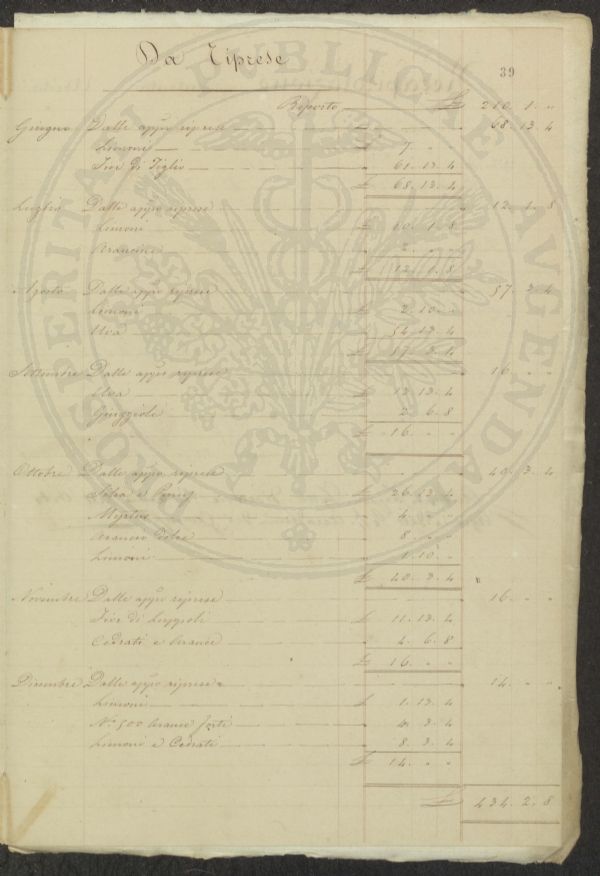 Da Riprese
39
Riporto £ 210. 1. "
Giugno Dalle appo riprese 68. 13. 4
Limoni 7. " "
Fior di Tiglio 61. 13. 4
£ 68. 13. 4
Luglio Dalle appo riprese 12. 1. 8
Limoni £ 10. 1. 8
Arancine 2. " "
£ 12. 1. 8
Agosto Dalle appo riprese 57. 3. 4
Limoni £ 2. 10. "
Uva 54. 13. 4
£ 57. 3. 4
Settembre Dalle appo riprese 16. " "
Uva £ 13. 13. 4
Giuggiole 2. 6. 8
£ 16. " "
Ottobre Dalle appo riprese 40. 3. 4
£ 26. 13. 4
4. " "
Arancio dolce 8. " "
Limoni 1. 10. "
£ 40. 3. 4
Novembre Dalle appo riprese 16. " "
Fior di £ 11. 13. 4
Cedrati e Arance 4. 6. 8
£ 16. " "
Dicembre Dalle appo riprese 14. " "
Limoni £ 1. 13. 4
No 500 Arance forti 4. 3. 4
Limoni e Cedrati 8. 3. 4
£ 14. " "
£ 434. 2. 8
PROSPERITATI PUBLICAE AUGENDAE